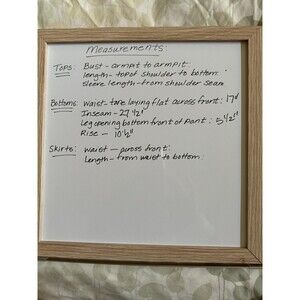 Measurements:
Tops: Bust - armpit to armpit:
length - top of shoulder to bottom:
sleeve length - from shoulder seam
Bottoms: Waist - tare laying flat across front: 17"
Inseam - 27 1/2"
Leg opening bottom front of pant: 5 1/2"
Rise - 10 1/2"
Skirts: waist - across front:
Length - from waist to bottom: